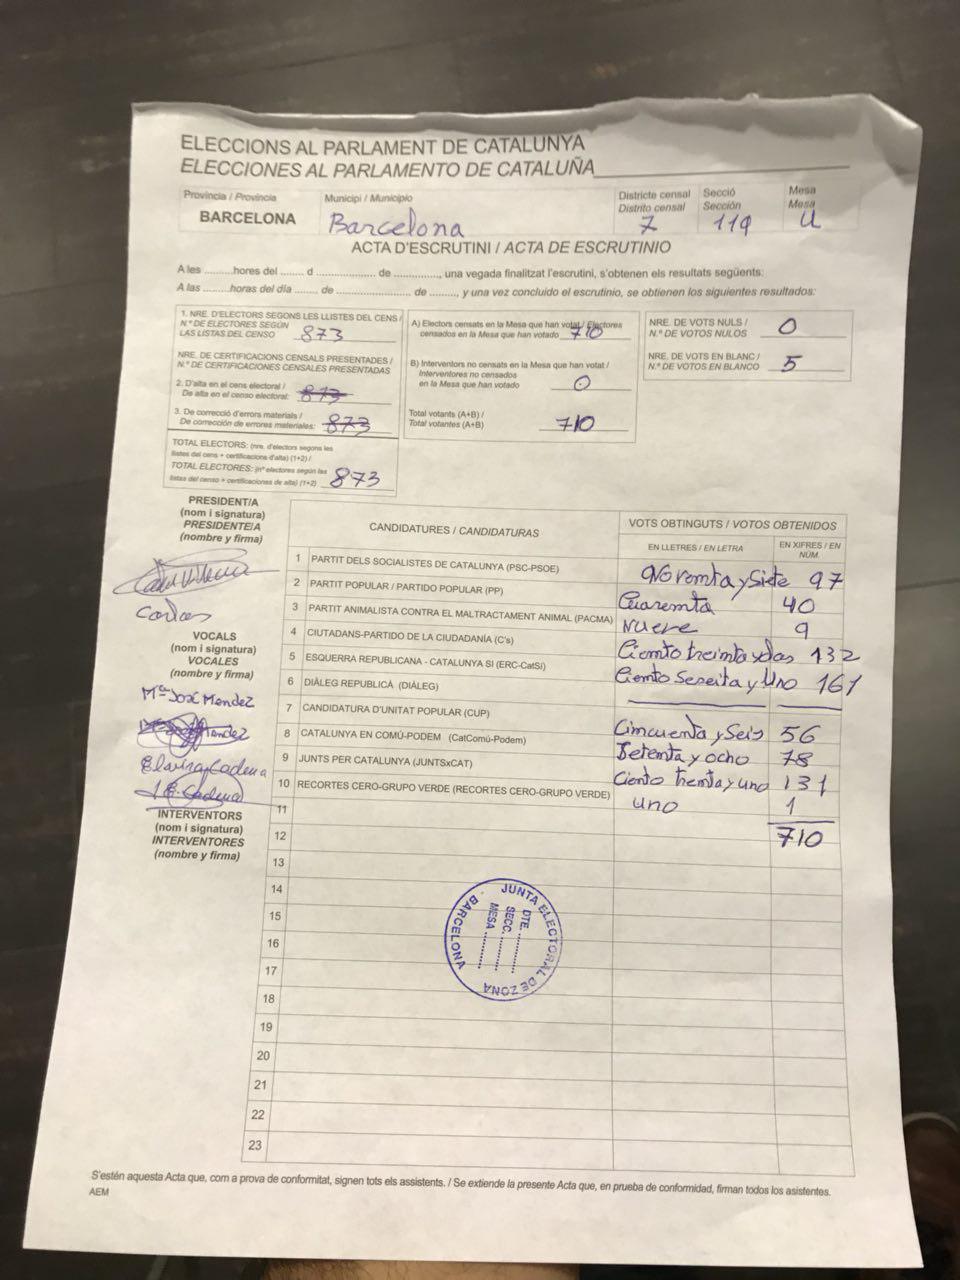 ELECCIONS AL PARLAMENT DE CATALUNYA
ELECCIONES AL PARLAMENTO DE CATALUÑA
Província / Provincia
BARCELONA
Municipi / Municipio
Barcelona
Districte censal
Distrito censal
7
Secció
Sección
119
Mesa
Mesa
U
ACTA D'ESCRUTINI / ACTA DE ESCRUTINIO
A les ..........hores del ........ d .................... de ..............., una vegada finalitzat l'escrutini, s'obtenen els resultats següents:
A las ..........horas del día ........ de ......................... de ........., y una vez concluido el escrutinio, se obtienen los siguientes resultados:
1. NRE. D'ELECTORS SEGONS LES LLISTES DEL CENS /
N.º DE ELECTORES SEGÚN
LAS LISTAS DEL CENSO 873
NRE. DE CERTIFICACIONS CENSALS PRESENTADES /
N.º DE CERTIFICACIONES CENSALES PRESENTADAS
2. D'alta en el cens electoral /
De alta en el censo electoral: 873
3. De correcció d'errors materials /
De corrección de errores materiales: 873
TOTAL ELECTORS: (nre. d'electors segons les
llistes del cens + certificacions d'alta) (1+2) /
TOTAL ELECTORES: (nº electores según las
listas del censo + certificaciones de alta) (1+2) 873
A) Electors censats en la Mesa que han votat / Electores
censados en la Mesa que han votado 710
B) Interventors no censats en la Mesa que han votat /
Interventores no censados
en la Mesa que han votado 0
Total votants (A+B) /
Total votantes (A+B) 710
NRE. DE VOTS NULS /
N.º DE VOTOS NULOS 0
NRE. DE VOTS EN BLANC /
N.º DE VOTOS EN BLANCO 5
PRESIDENT/A
(nom i signatura)
PRESIDENTE/A
(nombre y firma)
Carlos
VOCALS
(nom i signatura)
VOCALES
(nombre y firma)
Mª José Mendez
Mendez
Elvira Cadena
Cadena
INTERVENTORS
(nom i signatura)
INTERVENTORES
(nombre y firma)
CANDIDATURES / CANDIDATURAS
VOTS OBTINGUTS / VOTOS OBTENIDOS
EN LLETRES / EN LETRA
EN XIFRES / EN NÚM.
1 PARTIT DELS SOCIALISTES DE CATALUNYA (PSC-PSOE) Noventa y Siete 97
2 PARTIT POPULAR / PARTIDO POPULAR (PP) Cuarenta 40
3 PARTIT ANIMALISTA CONTRA EL MALTRACTAMENT ANIMAL (PACMA) Nueve 9
4 CIUTADANS-PARTIDO DE LA CIUDADANÍA (C's) Ciento treinta y dos 132
5 ESQUERRA REPUBLICANA - CATALUNYA SÍ (ERC-CatSí) Ciento Seseita y Uno 161
6 DIÀLEG REPUBLICÀ (DIÀLEG)
7 CANDIDATURA D'UNITAT POPULAR (CUP) Cincuenta y Seis 56
8 CATALUNYA EN COMÚ-PODEM (CatComú-Podem) Setenta y ocho 78
9 JUNTS PER CATALUNYA (JUNTSxCAT) Ciento treinta y uno 131
10 RECORTES CERO-GRUPO VERDE (RECORTES CERO-GRUPO VERDE) uno 1
11
12 710
13
14
15
16
17
18
19
20
21
22
23
JUNTA ELECTORAL DE ZONA
- BARCELONA
DTE.
SECC.
MESA
S'estén aquesta Acta que, com a prova de conformitat, signen tots els assistents. / Se extiende la presente Acta que, en prueba de conformidad, firman todos los asistentes.
AEM